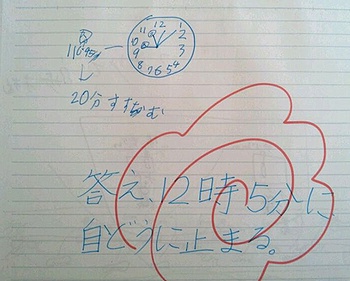 12
11 1
2
10
3
9
8 7 6 5 4
20分すすむ
答え、12時5分に
自どうに止まる。